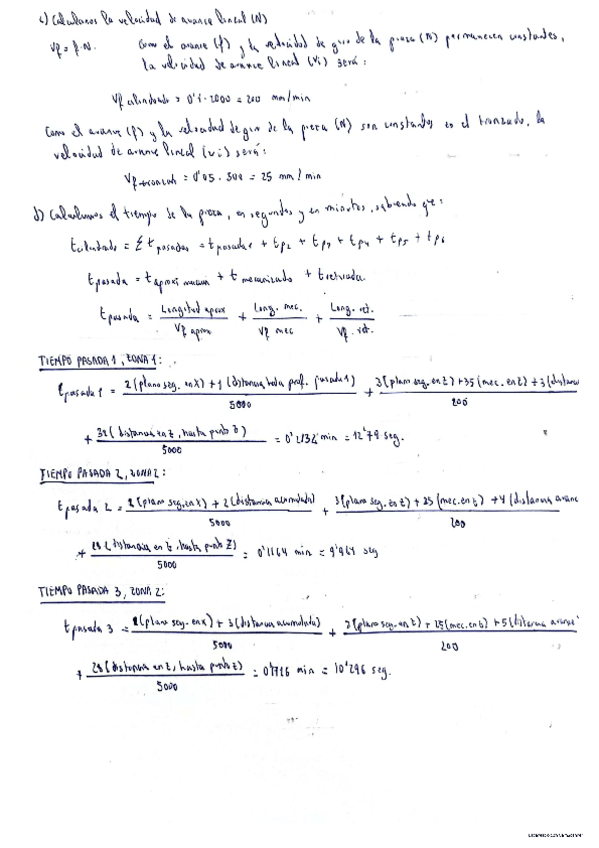 c) Calculamos la velocidad de avance lineal (N)
Vf = f·N. Como el avance (f) y la velocidad de giro de la pieza (N) permanecen constantes,
la velocidad de avance lineal (Vi) será:
Vf cilindrado = 0'1·2000 = 200 mm/min
Como el avance (f) y la velocidad de giro de la pieza (N) son constantes en el tronzado, la
velocidad de avance lineal (vi) será:
Vf tronzado = 0'05·500 = 25 mm/min
d) Calculamos el tiempo de la pieza, en segundos y en minutos, sabiendo que:
t cilindrado = Σ t pasadas = t pasada 1 + tp2 + tp3 + tp4 + tp5 + tp6
t pasada = t aproximación + t mecanizado + t retirada
t pasada = Longitud aprox / Vf aprox + Long. mec. / Vf mec + Long. ret. / Vf. ret.
TIEMPO PASADA 1, ZONA 1:
t pasada 1 = 2(plano seg. en X) + 1(distancia hasta prof. pasada 1) / 5000 + 3(plano seg. en Z) + 35(mec. en Z) + 3(distanc / 200
+ 32(distancia en Z, hasta punto Z) / 5000 = 0'2132 min = 12'79 seg.
TIEMPO PASADA 2, ZONA 2:
t pasada 2 = 2(plano seg. en X) + 2(distancia acumulada) / 5000 + 3(plano seg. en Z) + 25(mec. en Z) + 4(distancia avanc / 200
+ 28(distancia en Z, hasta punto Z) / 5000 = 0'1664 min = 9'984 seg
TIEMPO PASADA 3, ZONA 2:
t pasada 3 = 2(plano seg. en X) + 3(distancia acumulada) / 5000 + 3(plano seg. en Z) + 25(mec. en Z) + 5(distancia avanc / 200
+ 28(distancia en Z, hasta punto Z) / 5000 = 0'1716 min = 10'296 seg.